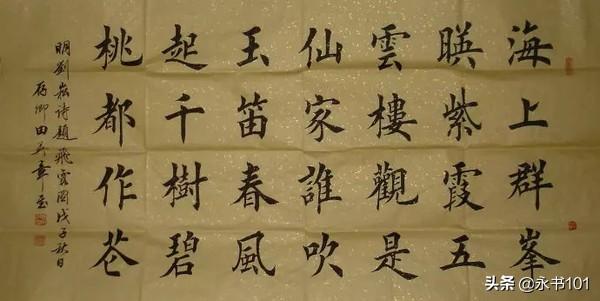 海上群峯
暎紫霞五
雲樓觀是
仙家誰吹
玉笛春風
起千樹碧
桃都作花
明劉崧诗題飛霞图戊子秋日
存卿田英章書
头条 @永书101